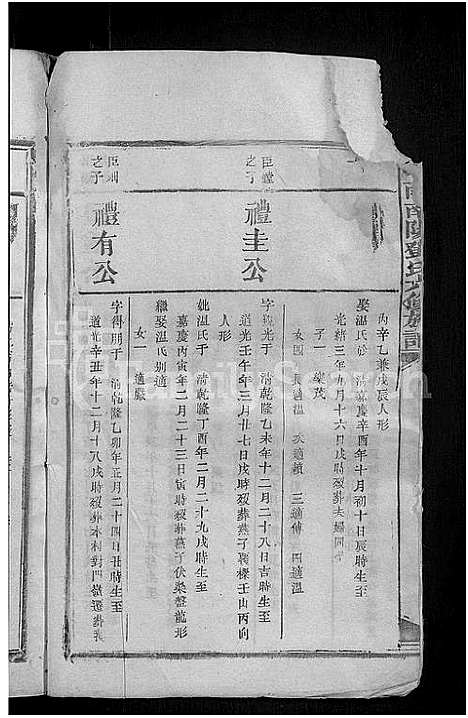 南陽鄧氏六修族譜
丙辛乙兼戌辰人形
娶温氏於 清嘉慶辛酉年十月初十日辰時生至
光緒三年九月十六日戌時歿葬夫
子一
女四 長適温 次適賴 三適傅 四適温
臣
之子
禮圭公
字 光于 清乾隆乙未年十二月二十八日吉時生至
道光壬午年三月廿七日戌時歿葬燕子 樑壬山丙向
人形
妣温氏于 清乾隆丁酉年二月二十九戌時生至
嘉慶丙寅年二月二十三日寅時歿葬燕子伏梁盤龍形
繼娶温氏別適
女一 適嚴
臣
之子
禮有公
字得朋于 清乾隆乙卯年五月二十四日廿時生至
道光辛丑年十二月十八戌時歿葬本村對門 遷葬
FamilySearch